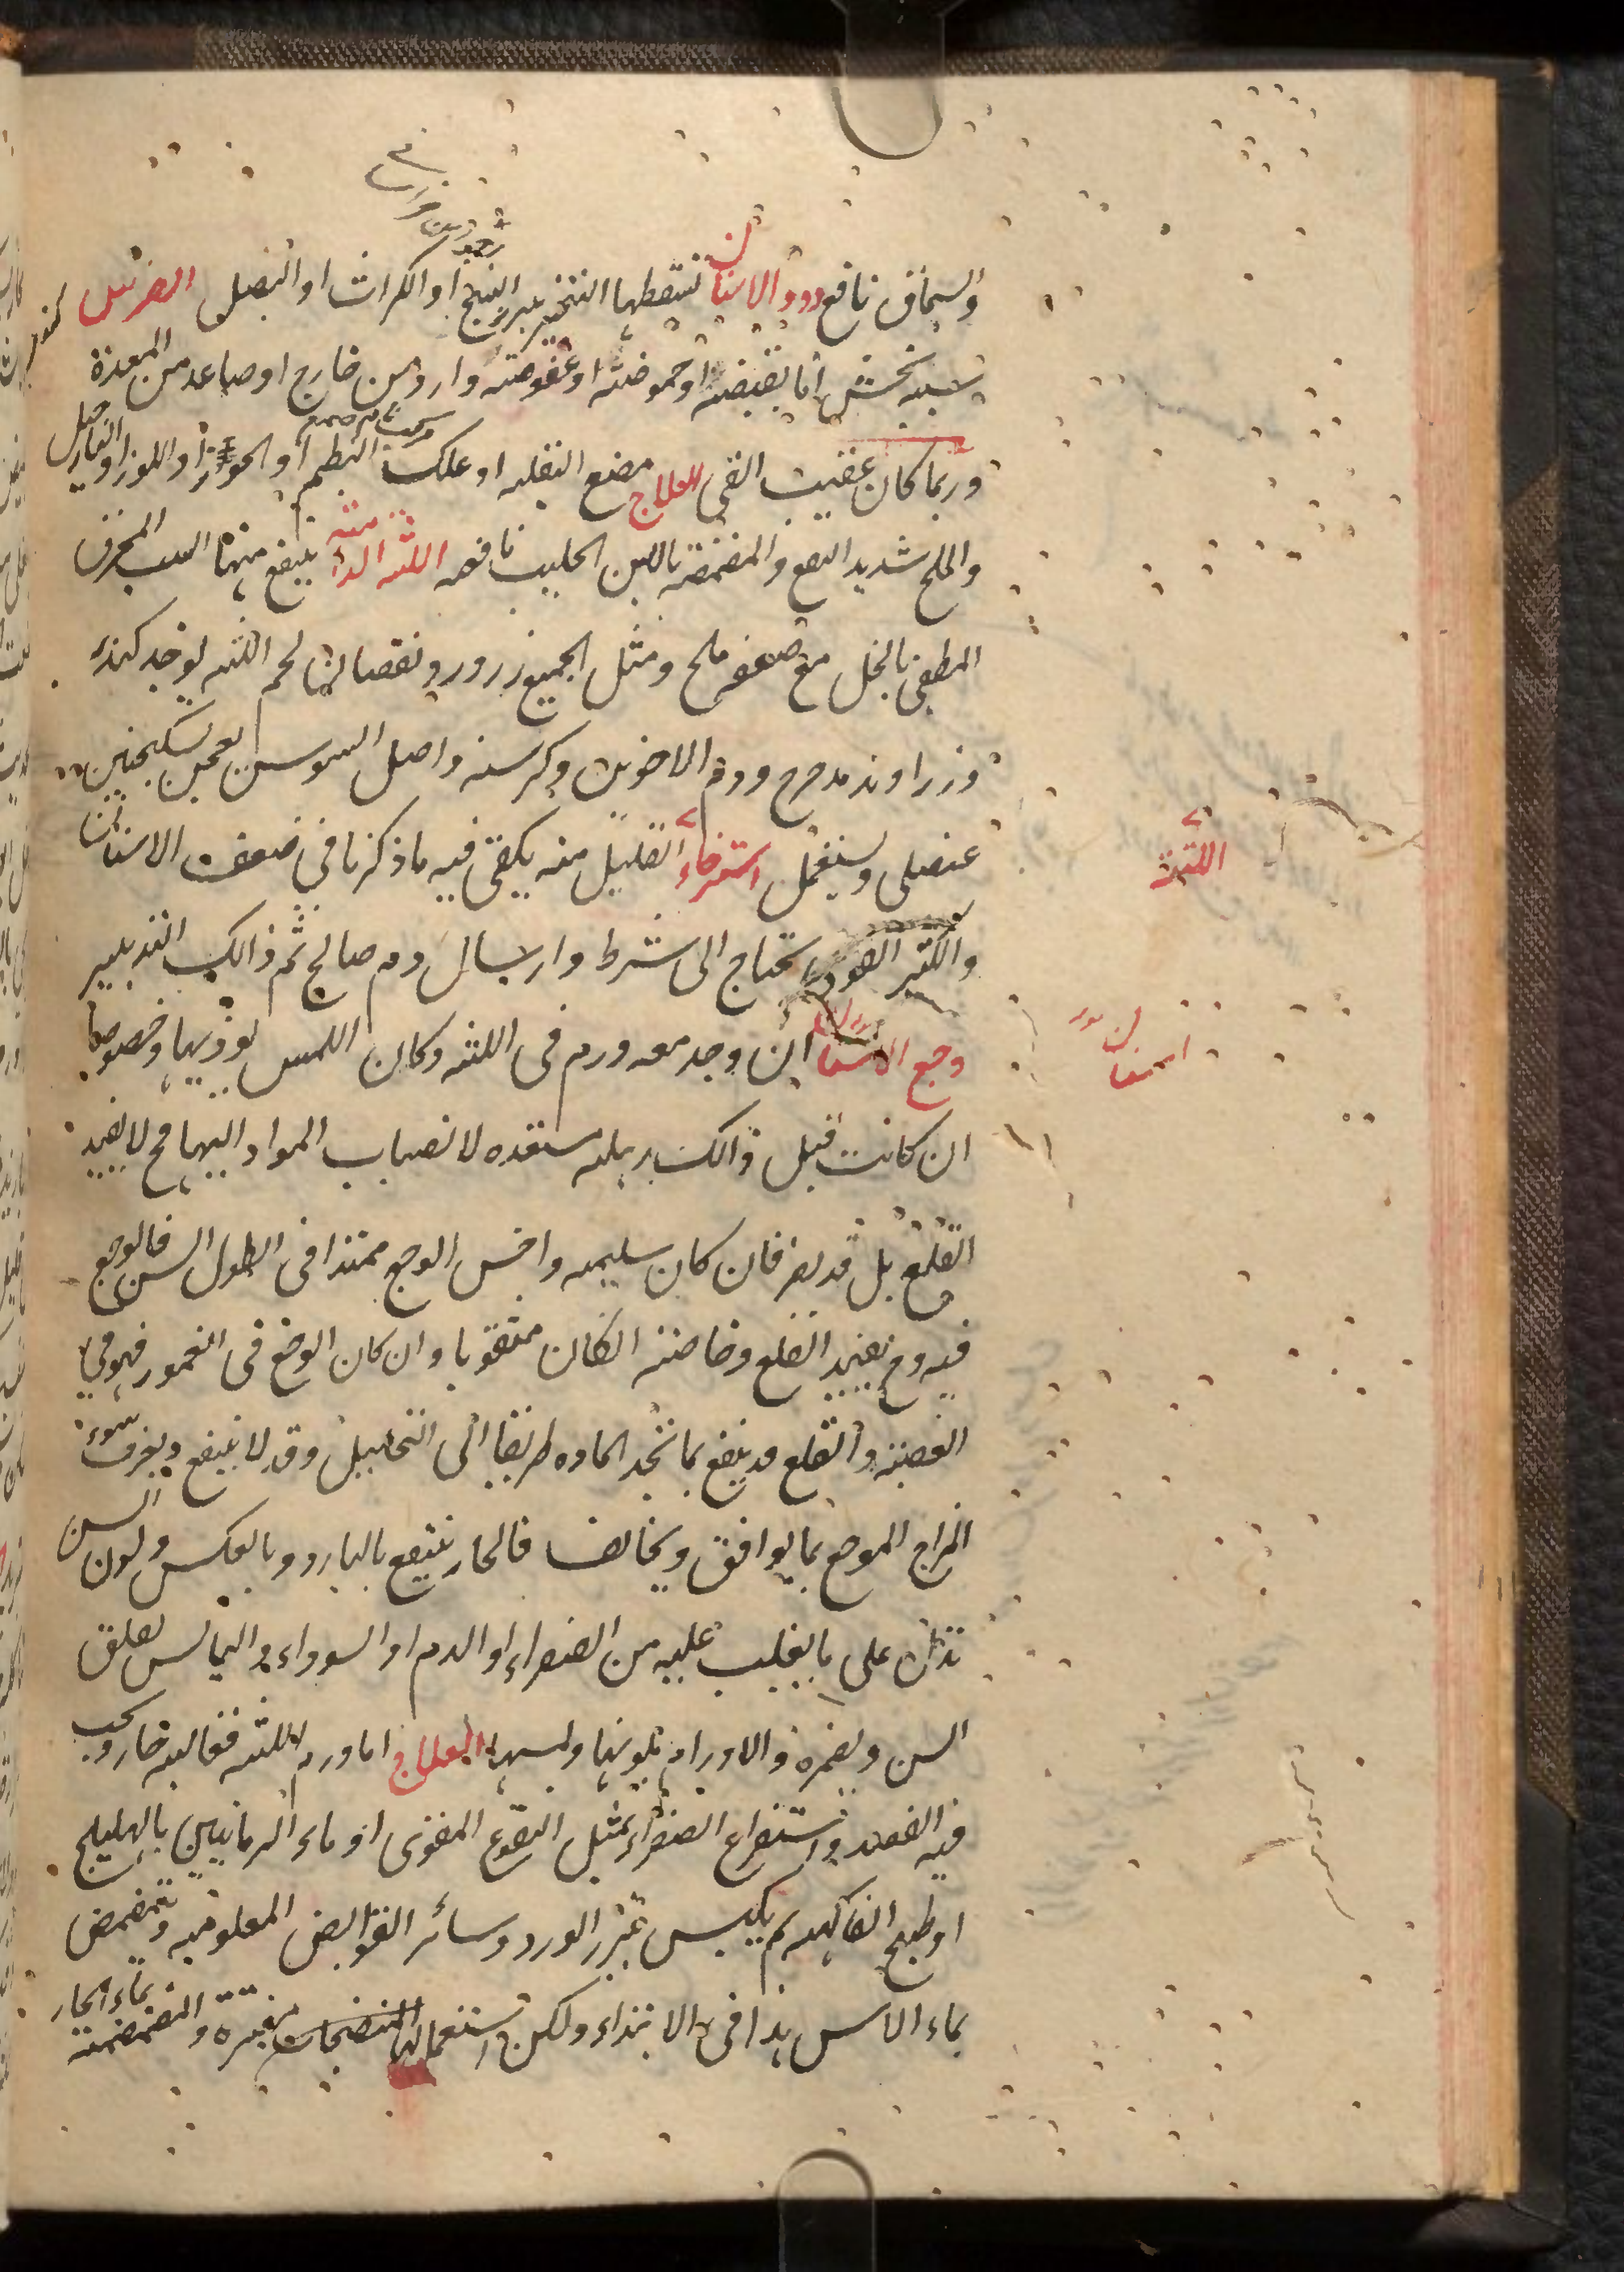 والسماق نافع دود الاسنان تسقطها التبخير ببزر البنج او الكراث او البصل الضرس
سببه مخشن اما بقبضه او حموضته او عفوصته وارد من خارج او صاعد من المعدة
وربما كان عقيب القي العلاج مضغ البقلة او علك البطم او الجوز او اللوز او النارجيل
والملح شديد النفع والمضمضة باللبن الحليب نافعه اللثه الدامية ينفع منها الشب المحرق
المطفي بالخل مع ضعفه ملح ومثل الجميع زرور ونقصان لحم اللثه يوخذ كندر
وزراوند مدحرج ودم الاخوين وكرسنه واصل السوسن يعجن بسكنجبين
عنصلي ويستعمل استرخاء القليل منه يكفي فيه ما ذكرنا في ضعف الاسنان
والكثير القوي يحتاج الى شرط وارسال دم صالح ثم ذالك التدبير
وجع الاسنان ان وجد معه ورم في اللثه وكان اللمس يوذيها وخصوصا
ان كانت قبل ذالك رهله مستعده لانصباب المواد اليها فح لا يفيد
القلع بل قد يضر فان كان سليمه واحس الوجع ممتدا في الطول السن فالوجع
فيه وح يفيد القلع وخاصته انكان مثقوبا وان كان الوجع في الغمور فهو في
العصبه والقلع قد ينفع بما تجد الماده طريقا الى التحليل وقد لا ينفع ويعرف سوء
المزاج الموجع بما يوافق ويخالف فالحار ينتفع بالبارد وبالعكس ولون السن
تدل على ما يغلب عليه من الصفراء او الدم او السوداء واليابس يقلق
السن ويضمره والاورام بلونها ولمسها العلاج اما ورم اللثه فغالبه حار ويجب
فيه الفصد واستفراغ الصفراء بمثل النقوع المقوى او ماء الرمانين بالهليلج
او طبيخ الفاكهه ثم يكبس بزر الورد وسائر القوابض المعلومه ويتمضمض
بماء الاس هذا في الابتداء ولكن استعمالها مفتره والمضمضة بماء الحار
اللثة
اسنان